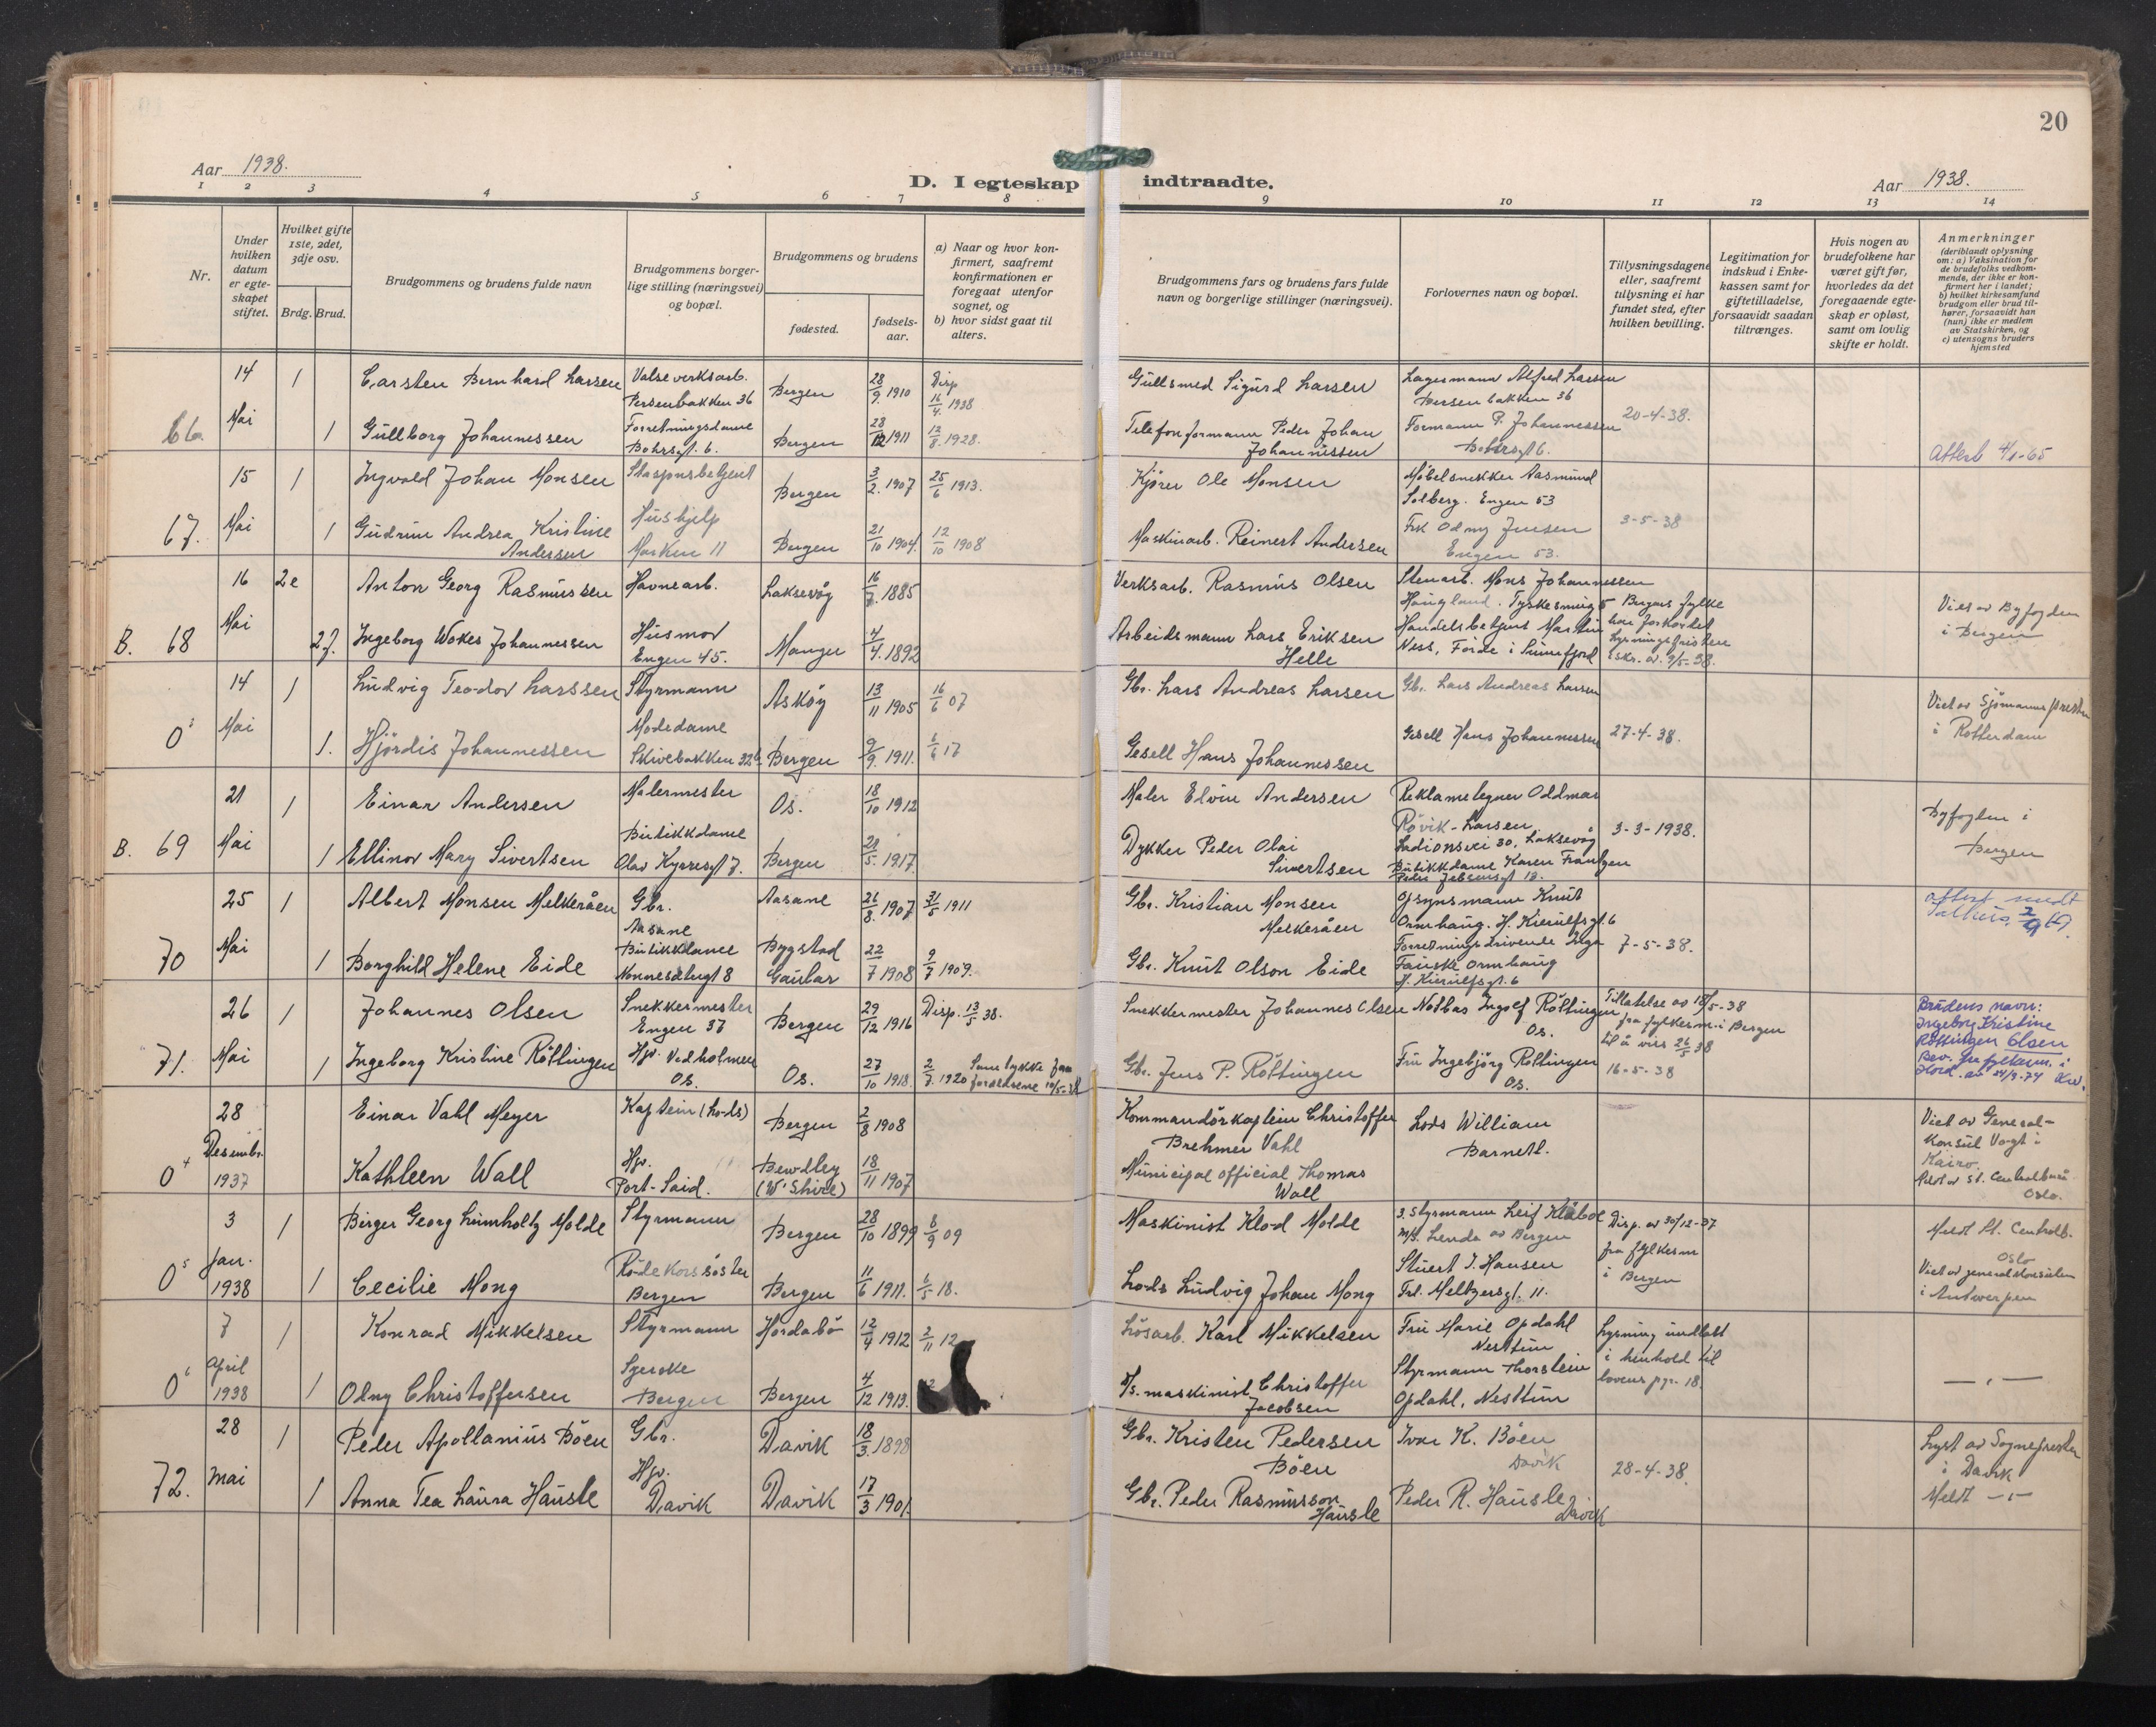 20
Aar 1938.
D. I egteskap indtraadte.
Aar 1938.
1 2 3 4 5 6 7 8 9 10 11 12 13 14
Nr.
Under hvilken datum er egte-skapet stiftet.
Hvilket gifte 1ste, 2det, 3dje osv.
Brdg. Brud.
Brudgommens og brudens fulde navn
Brudgommens borger-lige stilling (næringsvei) og bopæl.
Brudgommens og brudens
fødested.
fødsels-aar.
a) Naar og hvor kon-firmert, saafremt konfirmationen er foregaat utenfor sognet, og
b) hvor sidst gaat til alters.
Brudgommens fars og brudens fars fulde navn og borgerlige stillinger (næringsvei).
Forlovernes navn og bopæl.
Tillysningsdagene eller, saafremt tillysning ei har fundet sted, efter hvilken bevilling.
Legitimation for indskud i Enke-kassen samt for giftetilladelse, forsaavidt saadan tiltrænges.
Hvis nogen av brudefolkene har været gift før, hvorledes da det foregaaende egte-skap er opløst, samt om lovlig skifte er holdt.
Anmerkninger
(deriblandt oplysning om: a) Vaksination for de brudefolks vedkom-mende, der ikke er kon-firmert her i landet; b) hvilket kirkesamfund brudgom eller brud til-hører, forsaavidt han (hun) ikke er medlem av Statskirken, og c) utensogns bruders hjemsted
66. 14 Mai
1 Carsten Bernhard Larssen Valseverksarb. Persenbakken 36 Bergen 28/9 1910 Disp 16/4 1938
Gullsmed Sigurd Larssen Lagermann Alfred Larssen Persenbakken 36
1 Gullborg Johannessen Forretningsdame Bohrsgt. 6. Bergen 23/12 1911 12/8 1928.
Telefonformann Peder Johan Johannissen Formann P. Johannessen Bohrsgt 6. 20-4-38.
Attest 4/1-65
67. 15 Mai
1 Ingvald Johan Monsen Stasjonsbetjent Bergen 3/2 1907 25/6 1913.
Kjører Ole Monsen Møbelsnekker Aasmund Solberg. Engen 53
1 Gudrun Andrea Kristine Andersen Hushjelp Marken 11 Bergen 21/10 1904. 12/10 1908
Maskinarb. Reinert Andersen Frk Odny Jensen Engen 53. 3-5-38
B. 68 16 Mai
2e Anton Georg Rasmussen Havnearb. Laksevåg 16/7 1885
Verksarb. Rasmus Olsen Stenarb. Mons Johannessen Haugland. Tyskesmug 5
27. Ingeborg Wokes Johannessen Husmor Engen 45. Manger 4/4 1892
Arbeidsmann Lars Eriksen Helle Handelsbetjent Martin Ness, Førde i Sunnfjord
Bergens fylke har forkortet lysningsfristen skr. av 9/5-38.
Viet av Byfogden i Bergen
0³ 14 Mai
1 Ludvig Teodor Larssen Styrmann Askøy 13/11 1905 16/6 07
Gbr. Lars Andreas Larsen Gbr. Lars Andreas Larsen
1. Hjørdis Johannessen Motedame Skivebakken 32b Bergen 9/9 1911. 17
Gesell Hans Johannessen Gesell Hans Johannessen 27-4-38.
Viet av Sjømannspresten i Rotterdam
B. 69 21 Mai
1 Einar Andersen Malermester Os. 18/10 1912
Maler Elvin Andersen Reklametegner Oddmar Røvik-Larsen, 30, Laksevåg
1 Ellinor Mary Sivertsen Butikkdame Olav Kyrresgt 7. Bergen 5. 1917.
Dykker Peder Olai Sivertsen Butikkdame Karen Frantzen Peder Jebsensgt 13. 3-3-1938.
Byfogden i Bergen
70 25 Mai
1 Albert Monsen Melkeråen Gbr. Aasane Aasane 26/8. 1907 31/5 1911
Gbr. Kristian Monsen Melkeråen Opsynsmann Knut Ormhaug. H. Kierulfsgt. 6
1 Borghild Helene Eide Butikkdame Nonneseterget 8 Bygstad Gaular 22/7 1908 9/7 1909.
Gbr. Knut Olson Eide Forretningsdrivende Inga Fauske Ormhaug H. Kierulfsgt. 6 7-5-38.
attest sendt
71. 26 Mai
1 Johannes Olsen Snekkermester Engen 37 Bergen 29/12 1916 Disp. 13/5 38.
Snekkermester Johannes Olsen Notbas Ingolf Røttingen Os.
Tillatelse av 18/5-38 fra fylkesm. i Bergen til å vies 26/5 38
1 Ingeborg Kristine Røttingen Hjv. Vedholmen Os. Os. 27/10 1918. 2/7. 1920 Samtykke fra foreldrene 10/5-38
Gbr. Jens P. Røttingen Fru Ingebjørg Røttingen Os. 16-5-38
Brudens navn: Ingeborg Kristine Røttingen Olsen Bev. fra fylkesm. i Hord. av 24/9-74
0⁴ 28 Desembr. 1937
Einar Vahl Meyer Kaptein (Lods) Bergen 2/8 1908
Kommandørkaptein Christoffer Brehmer Vahl Lods William Barnett.
Kathleen Wall Hjv. Port-Said. Bewdley (W'Shire) 18/11 1907
Municipal official Thomas Wall
Viet av General-Konsul Vogt i Kairo. Meldt av St. Centralbureå Oslo.
0⁵ 3 Jan. 1938
1 Birger Georg Lumholtz Molde Styrmann Bergen 28/10 1899 6/9 09
Maskinist Klod Molde 3. Styrmann Leif Klæboe M/S. Lenda av Bergen
Disp. av 30/12-37 fra fylkesm i Bergen
1 Cecilie Mong Røde Korssøster Bergen Bergen 11/6 1911. 6/5 18.
Lods Ludvig Johan Mong Stuert J. Hansen Frl. Meltzersgt. 11.
Meldt St. Centralb. Oslo Viet av generalkonsulen i Antwerpen
0⁶ 7 April 1938
1 Konrad Mikkelsen Styrmann Hordabø 12/4 1912 2/11 12
Løsarb. Karl Mikkelsen Fru Marie Opdahl Nesttun
Lysning undlatt i henhold til lovens pgr. 18.
1 Olny Christoffersen Syerske Bergen Bergen 4/12 1913.
D/S. maskinist Christoffer Jacobsen Styrmann Thorstein Opdahl, Nesttun
— " —
72. 28 Mai
1 Peder Apollanius Bøen Gbr. Davik 18/3. 1898
Gbr. Kristen Pedersen Bøen Ivar K. Bøen Davik
1 Anna Tea Laura Hausle Hjv. Davik Davik 17/3 1901.
Gbr. Peder Rasmusson Hausle Peder R. Hausle Davik 28-4-38.
Lyst av Sognepresten i Davik Meldt — " —